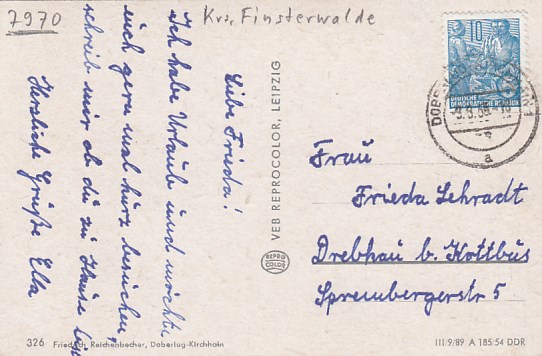 7970
Krs. Finsterwalde
Liebe Frieda!
Ich habe Urlaub und möchte
euch gern mal kurz besuchen,
schreib mir ob du zu Hause
Herzliche Grüße Ella
VEB REPROCOLOR, LEIPZIG
REPRO
COLOR
10
DEUTSCHE
DEMOKRATISCHE REPUBLIK
a
Frau
Frieda Lehradt
Drebkau b. Kottbus
Sprembergerstr 5
326 Friedrich Reichenbecher, Doberlug-Kirchhain
III/9/89 A 185/54 DDR